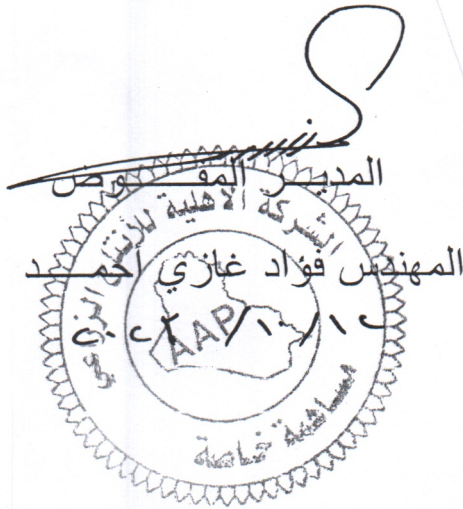 المديـر المفـوض
المهندس فؤاد غازي احمـد
الشركة الاهلية للأنتاج الزراعي
AAP
مساهمة خاصة